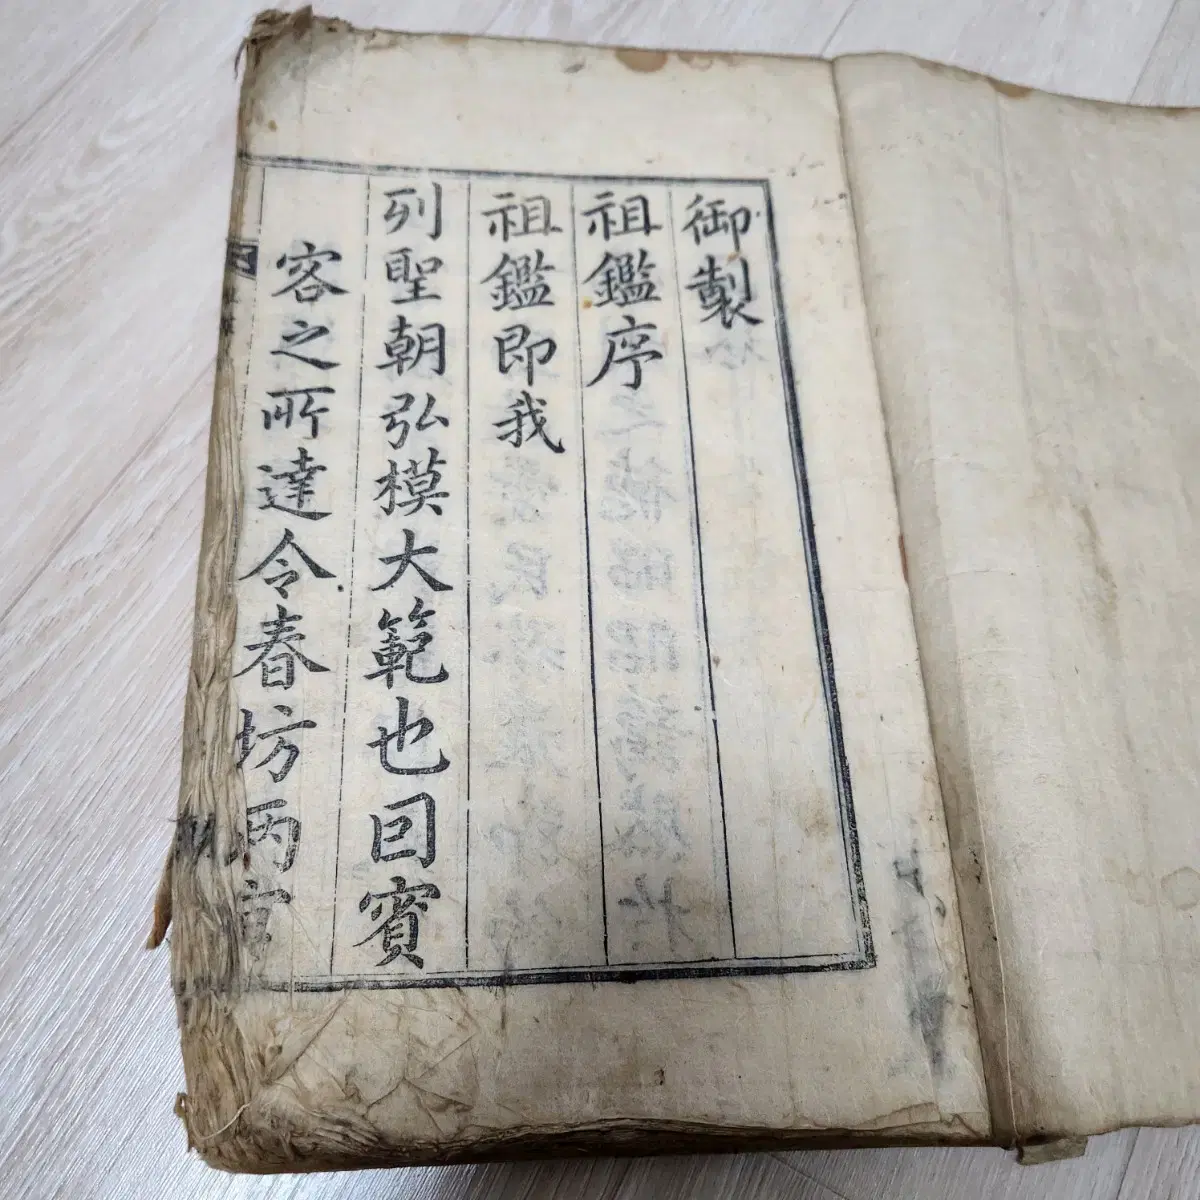 御製
祖鑑序
祖鑑即我
列聖朝弘模大範也曰賓
客之所達令春坊兩官